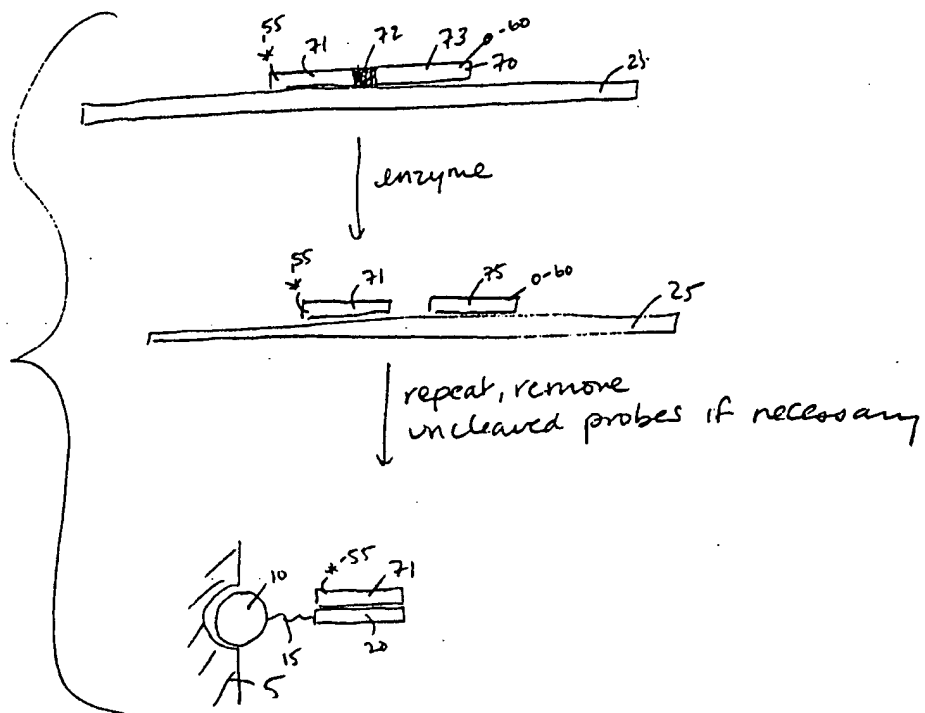 55 71 72 73 0-60
* 70 25
enzyme
55 71 75 0-60
* 25
repeat, remove
uncleaved probes if necessary
*-55
10 71
15 20
5